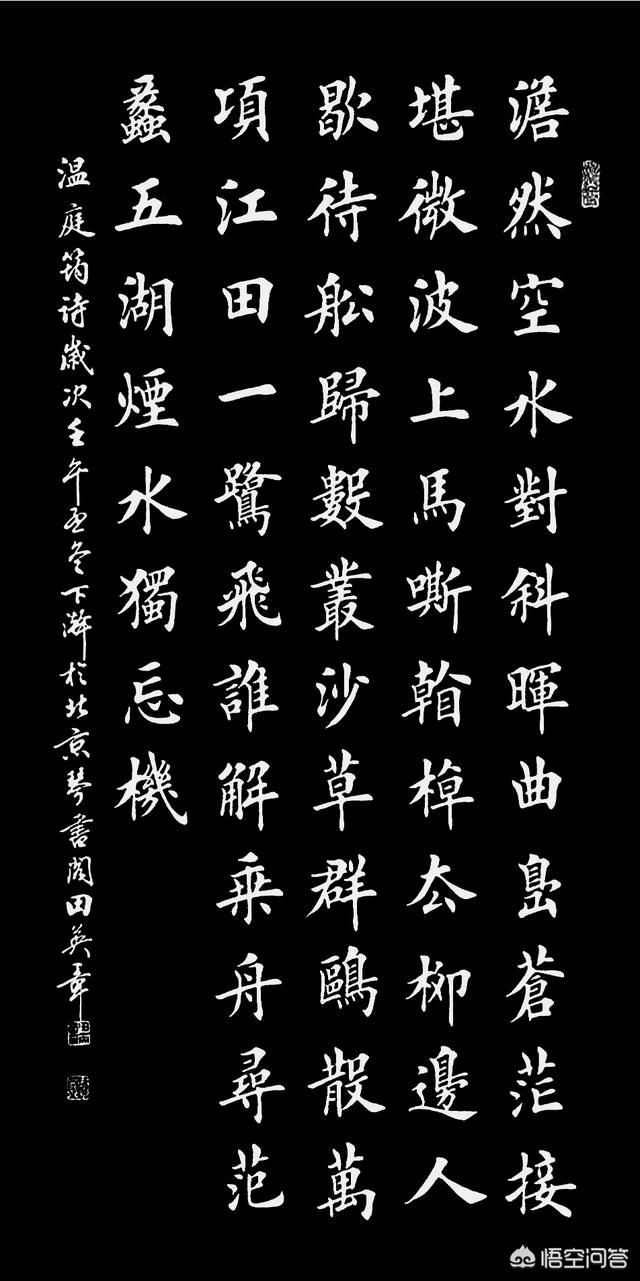 澹然空水對斜暉曲島蒼茫接
堪微波上馬嘶看棹厺柳邊人
歇待舩歸數叢沙草群鷗散萬
項江田一鷺飛誰解乗舟尋范
蠡五湖煙水獨忘機
温庭筠诗歲次壬午孟冬下澣於北京琴書閣田英章
悟空问答